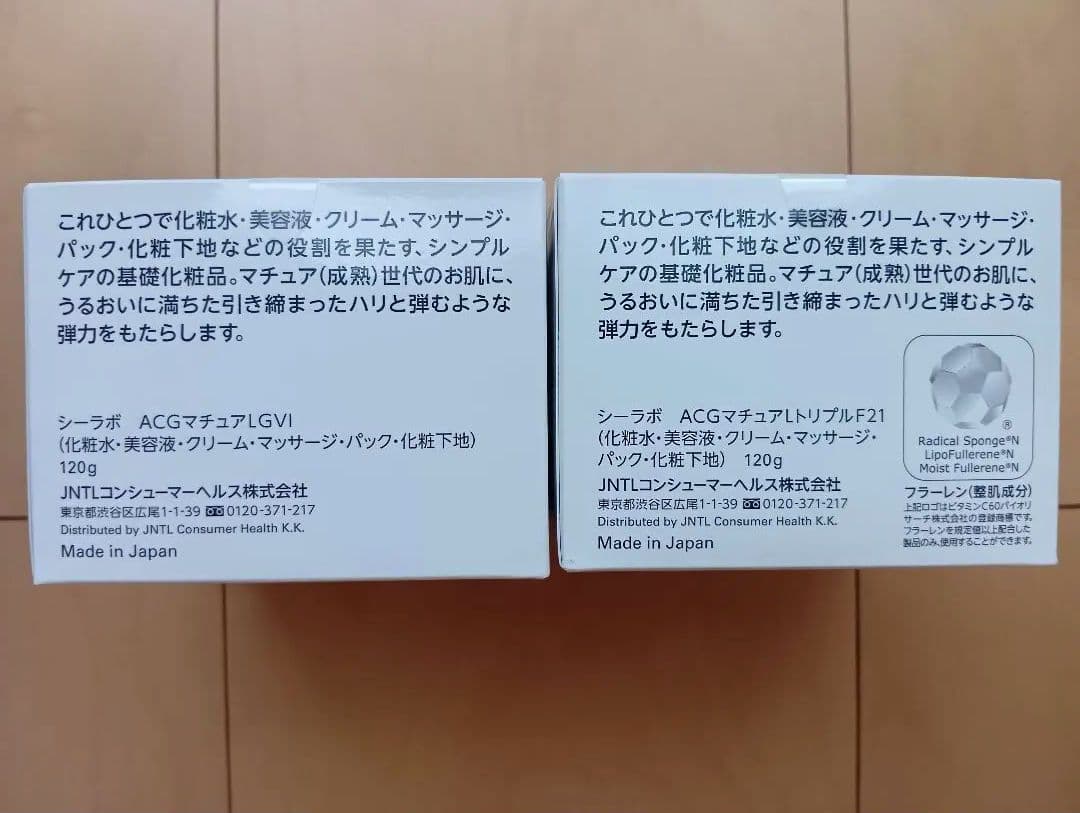 これひとつで化粧水・美容液・クリーム・マッサージ・
パック・化粧下地などの役割を果たす、シンプル
ケアの基礎化粧品。マチュア(成熟)世代のお肌に、
うるおいに満ちた引き締まったハリと弾むような
弾力をもたらします。
シーラボ ACGマチュアLGVI
(化粧水・美容液・クリーム・マッサージ・パック・化粧下地)
120g
JNTLコンシューマーヘルス株式会社
東京都渋谷区広尾1-1-39 0120-371-217
Distributed by JNTL Consumer Health K.K.
Made in Japan
これひとつで化粧水・美容液・クリーム・マッサージ・
パック・化粧下地などの役割を果たす、シンプル
ケアの基礎化粧品。マチュア(成熟)世代のお肌に、
うるおいに満ちた引き締まったハリと弾むような
弾力をもたらします。
シーラボ ACGマチュアLトリプルF21
(化粧水・美容液・クリーム・マッサージ・
パック・化粧下地) 120g
JNTLコンシューマーヘルス株式会社
東京都渋谷区広尾1-1-39 0120-371-217
Distributed by JNTL Consumer Health K.K.
Made in Japan
®
Radical Sponge®N
LipoFullerene®N
Moist Fullerene®N
フラーレン(整肌成分)
上記ロゴはビタミンC60バイオリ
サーチ株式会社の登録商標です。
フラーレンを規定値以上配合した
製品のみ、使用することができます。